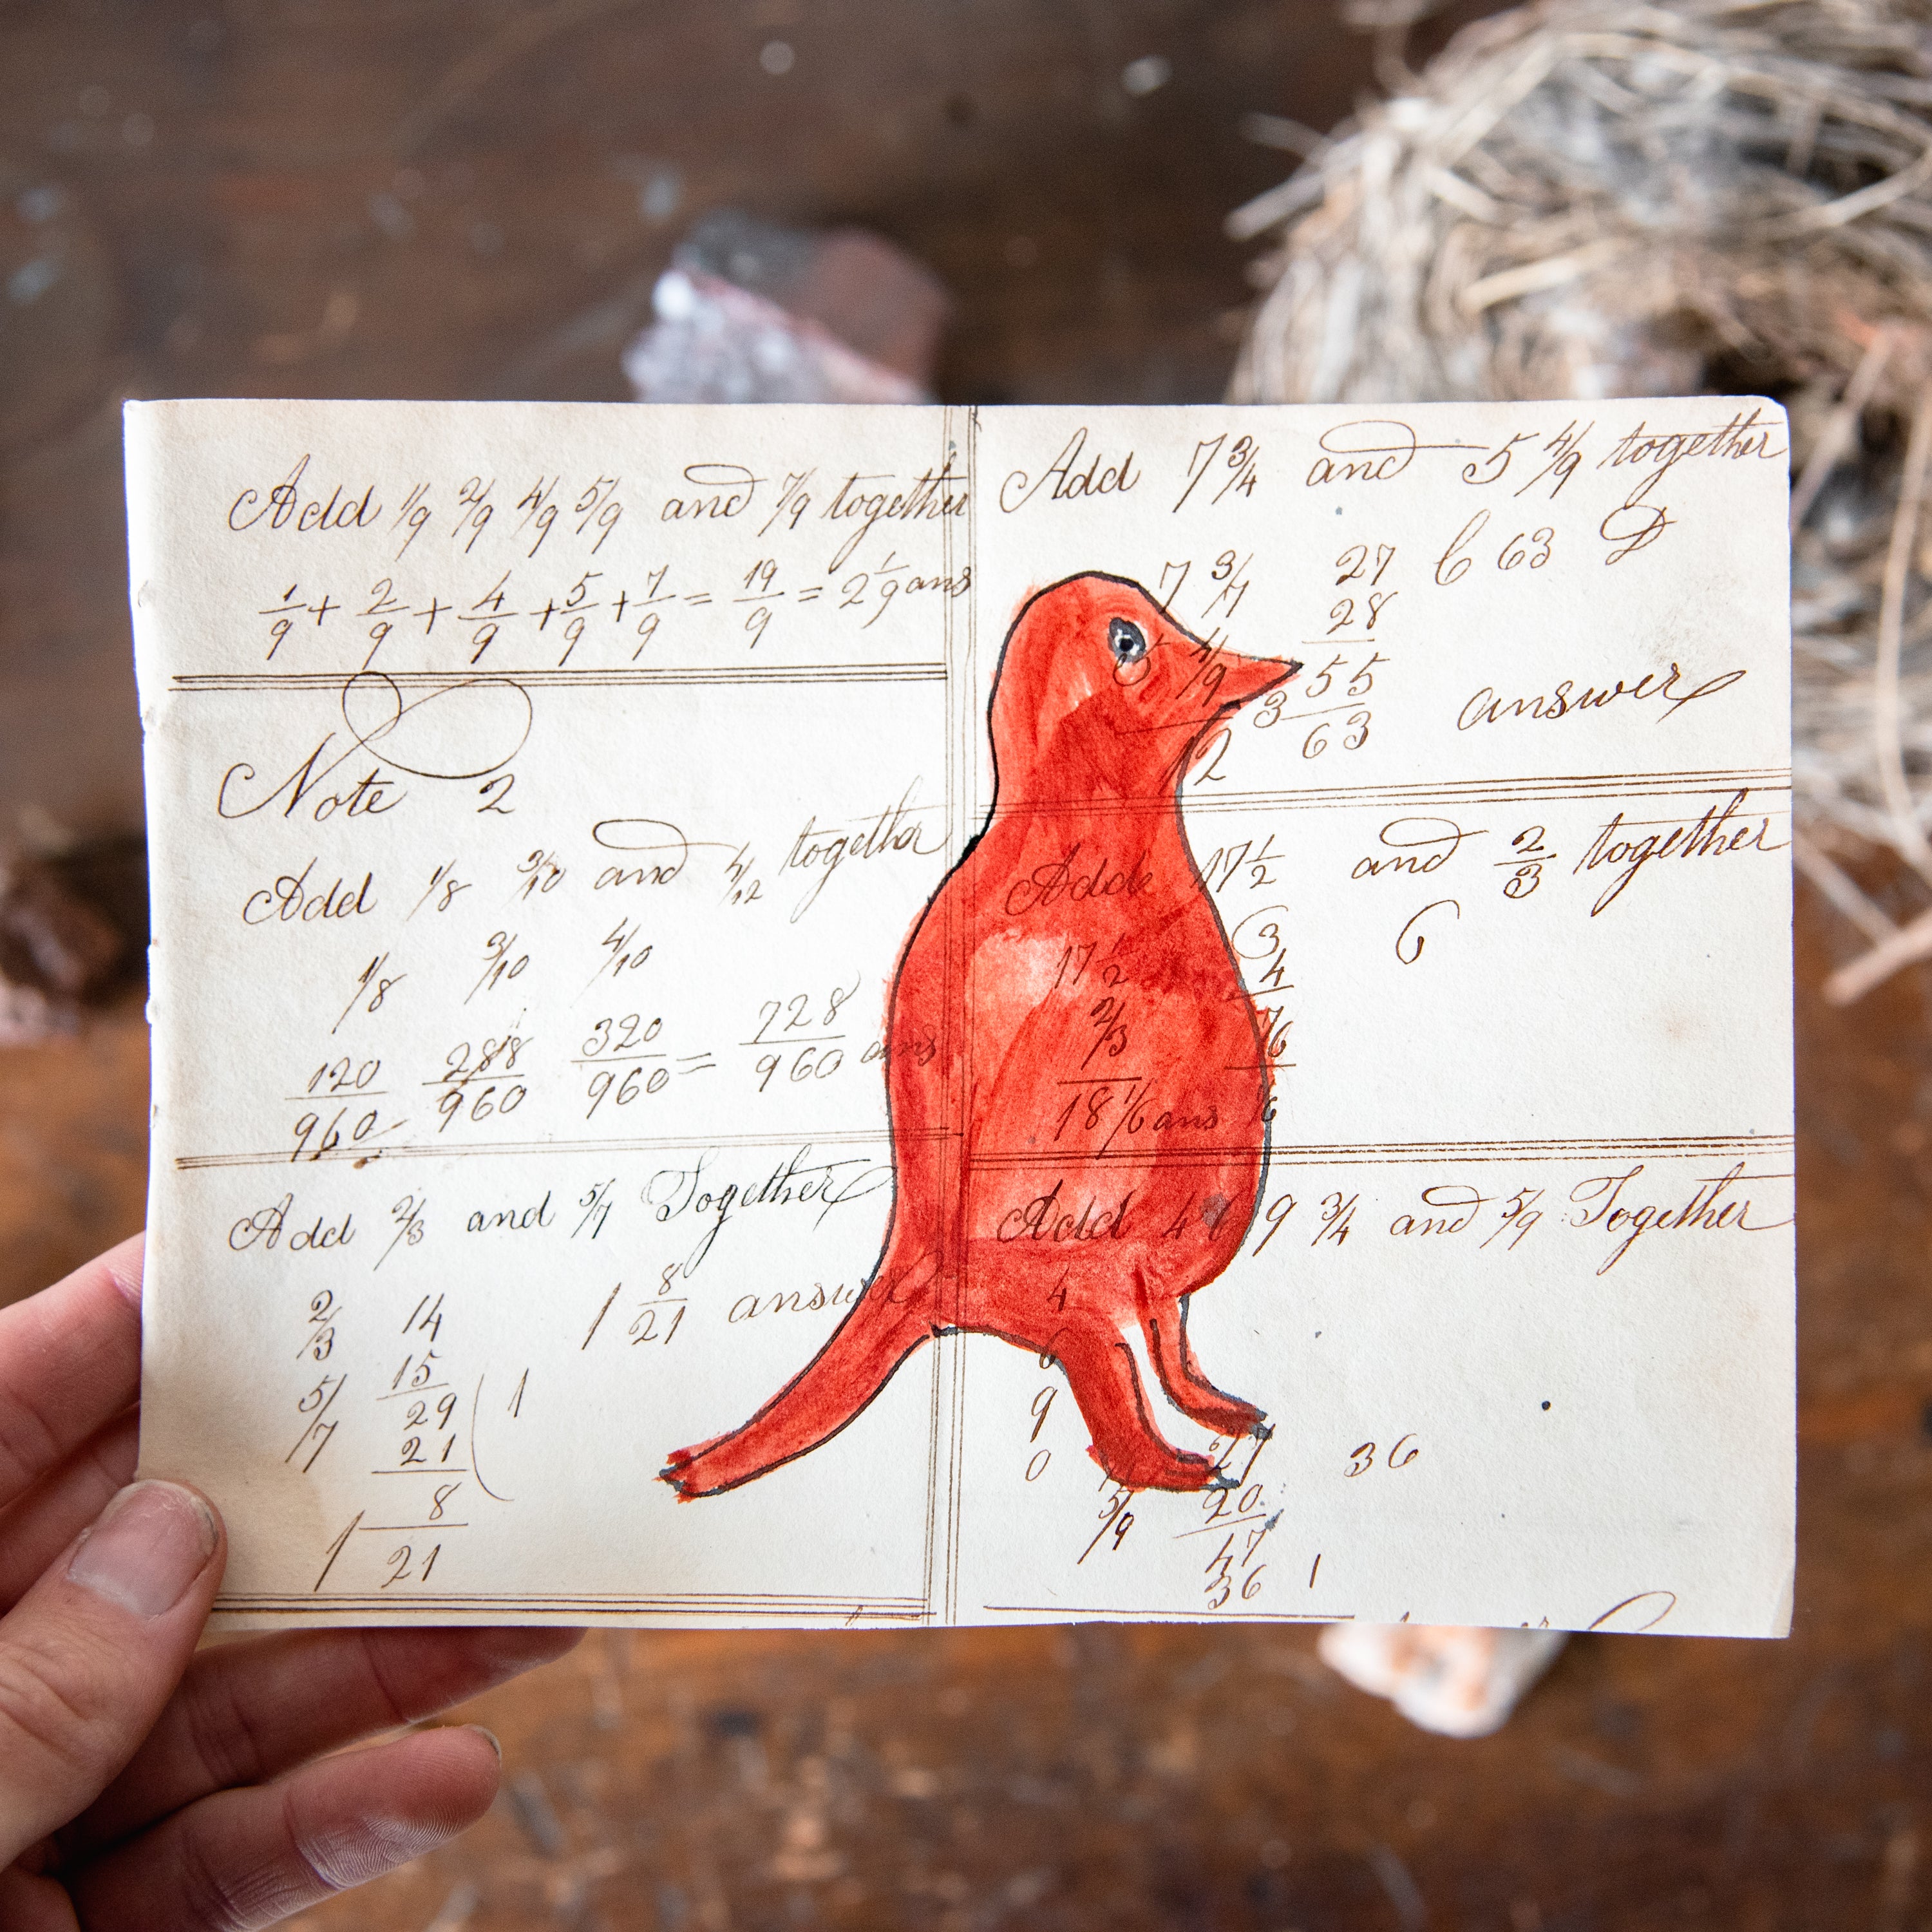 Add 1/9 2/9 4/9 5/9 and 7/9 together
1/9 + 2/9 + 4/9 + 5/9 + 7/9 = 19/9 = 2 1/9 ans
Note 2
Add 1/8 3/10 and 4/12 together
1/8 3/10 4/10
120/960 288/960 320/960 = 728/960 ans
Add 2/3 and 5/7 Together
2/3 14 1 8/21 answer
5/7 15
29 ( 1
21
8
1
21
Add 7 3/4 and 5 4/9 together
7 3/4 27 63
28
5 4/9 55
12 3 63 answer
Add 17 1/2 and 2/3 together
17 1/2 3 6
2/3 4
18 1/6 ans
Add 4 6 9 3/4 and 5/9 Together
4
6
9 27 36
0 20
5/9 47
36 1